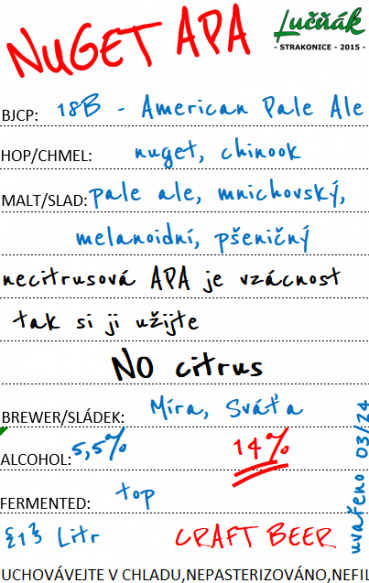 NUGET APA
Lučňák
- STRAKONICE - 2015 -
BJCP: 18B - American Pale Ale
HOP/CHMEL: nuget, chinook
MALT/SLAD: pale ale, mnichovský,
melanoidní, pšeničný
necitrusová APA je vzácnost
tak si ji užijte
NO citrus
BREWER/SLÁDEK: Míra, Sváťa
ALCOHOL: 5,5% 14%
FERMENTED: top
Litr CRAFT BEER
uvařeno 03/24
UCHOVÁVEJTE V CHLADU,NEPASTERIZOVÁNO,NEFIL